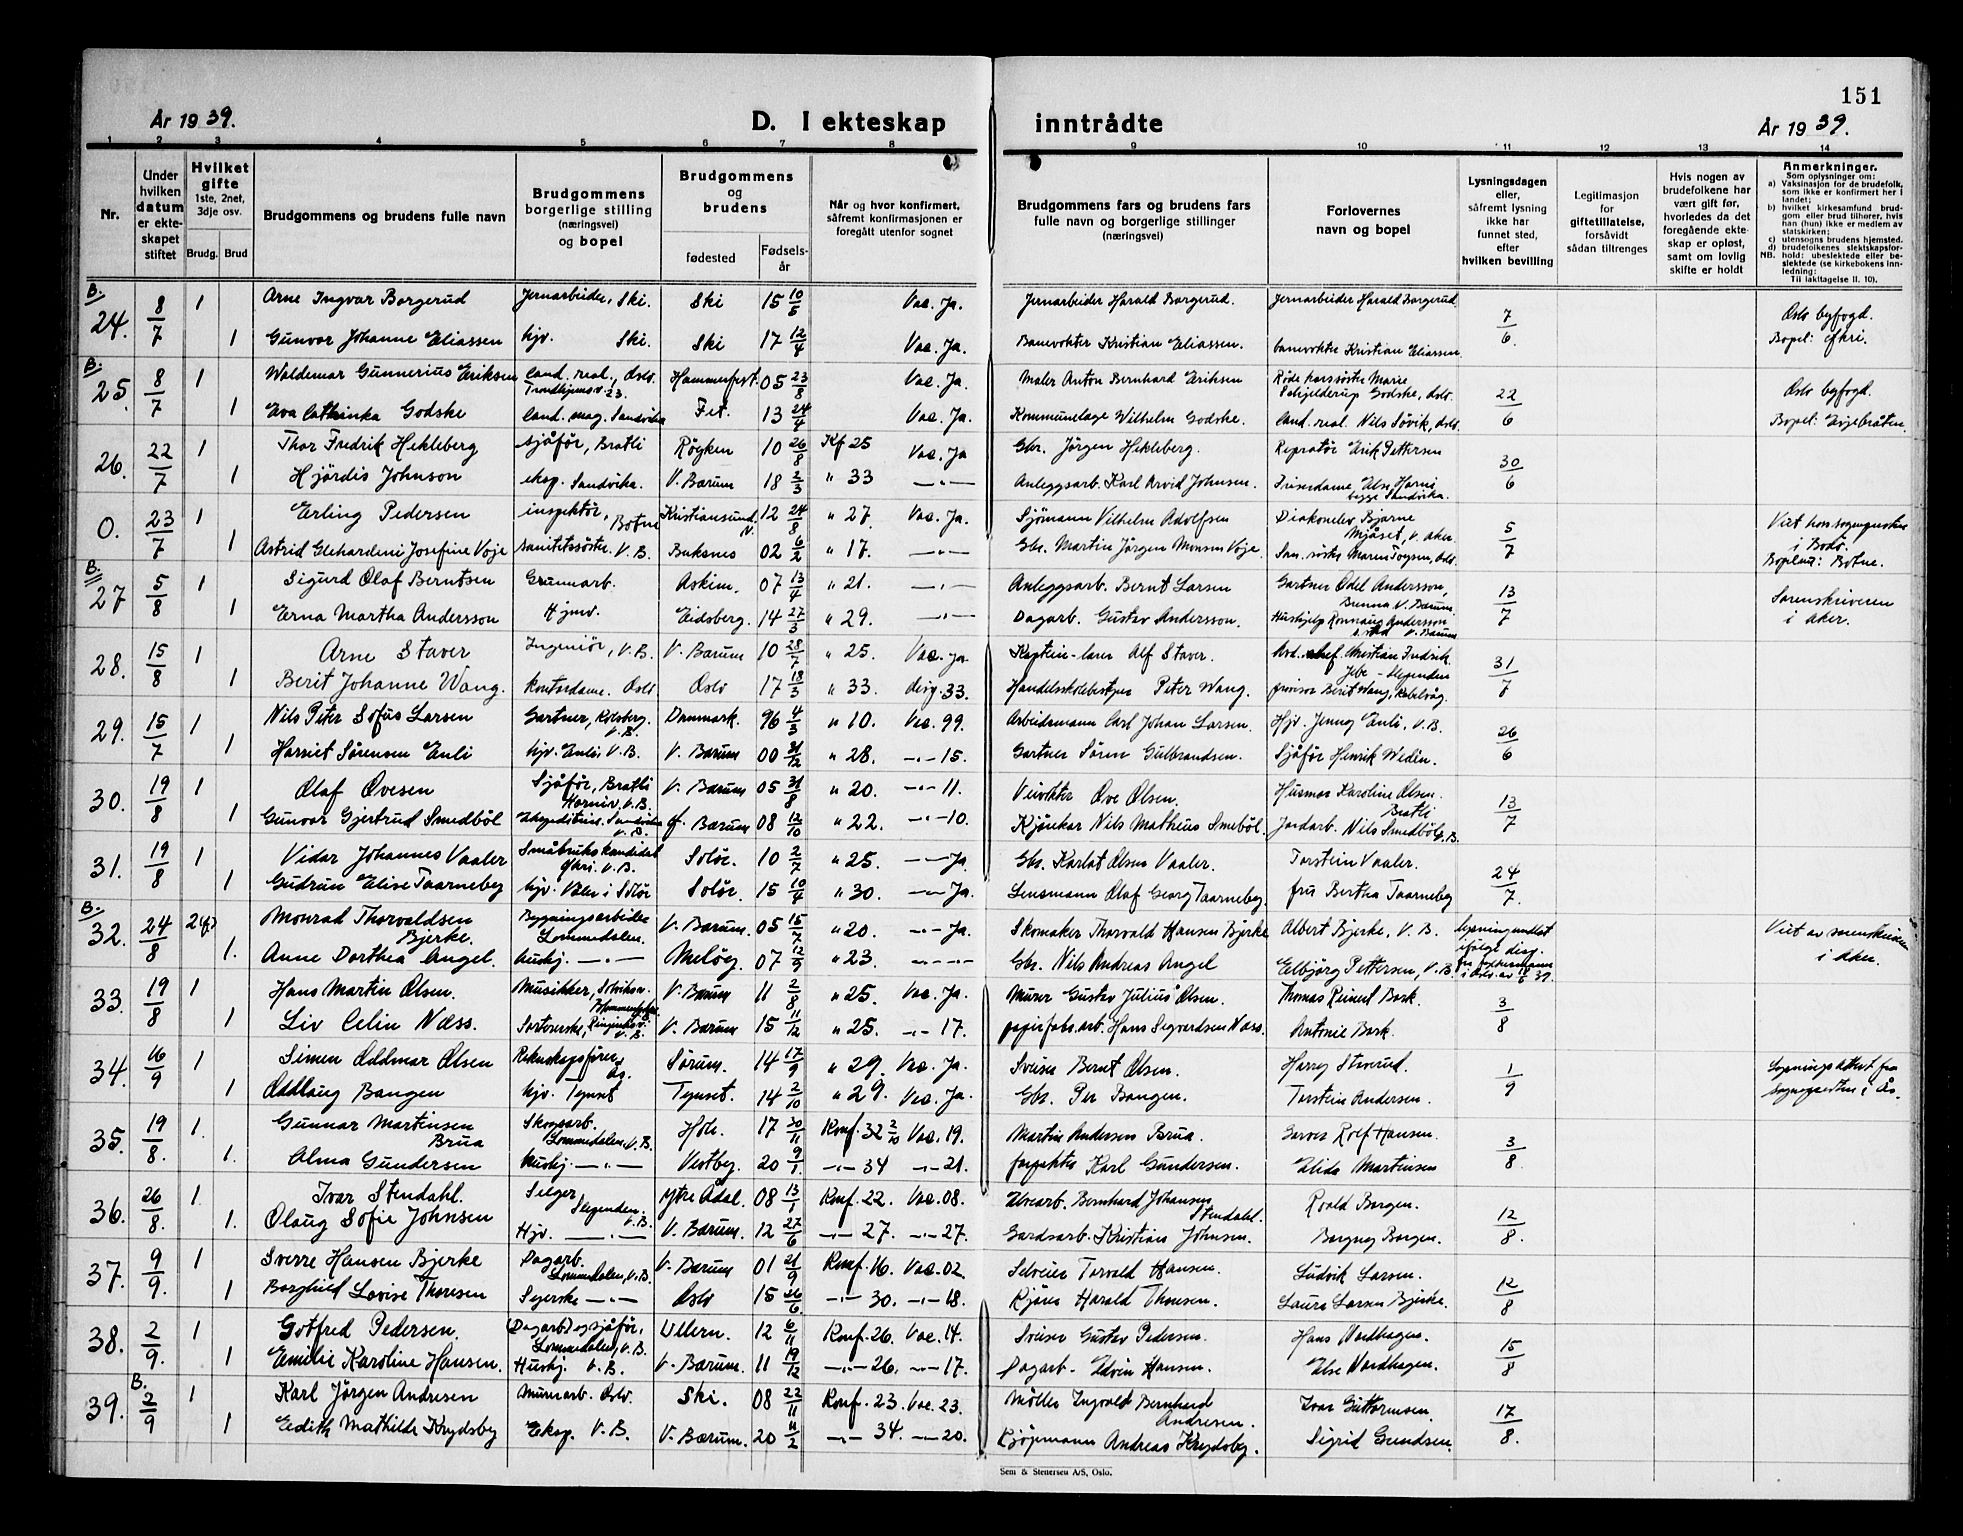 151
År 1939.
D. I ekteskap inntrådte
År 1939.
1 2 3 4 5 6 7 8 9 10 11 12 13 14
Nr.
Under hvilken datum er ekteskapet stiftet
Hvilket gifte 1ste, 2net, 3dje osv.
Brudg. Brud
Brudgommens og brudens fulle navn
Brudgommens borgerlige stilling (næringsvei) og bopel
Brudgommens og brudens
fødested
Fødselsår
Når og hvor konfirmert, såfremt konfirmasjonen er foregått utenfor sognet
Brudgommens fars og brudens fars fulle navn og borgerlige stillinger (næringsvei)
Forlovernes navn og bopel
Lysningsdagen eller, såfremt lysning ikke har funnet sted, efter hvilken bevilling
Legitimasjon for giftetillatelse, forsåvidt sådan tiltrenges
Hvis nogen av brudefolkene har vært gift før, hvorledes da det foregående ekteskap er opløst, samt om lovlig skifte er holdt
Anmerkninger.
Som oplysninger om:
a) Vaksinasjon for de brudefolk, som ikke er konfirmert her i landet;
b) hvilket kirkesamfund brudgom eller brud tilhører, hvis han (hun) ikke er medlem av statskirken;
c) utensogns brudens hjemsted.
d) brudefolkenes slektskapsforhold: ubeslektede eller beslektede (se kirkebokens innledning:
NB.
Til iakttagelse II. 10).
B. 24. 8/7 1 Arne Ingvar Borgerud Jernarbeider, Ski. Ski 15 10/5 Vac. Ja. Jernarbeider Harald Borgerud. Jernarbeider Harald Borgerud 7/6. Oslo byfogd.
1 Gunvor Johanne Eliassen hjv. Ski. Ski 17 12/4 Vac. Ja. Banevokter Kristian Eliassen. banevokter Kristian Eliassen. Bopel:
B. 25. 8/7 1 Waldemar Gunnerius Eriksen cand. real., Oslo. Trondhjemsv. 23. Hammerfest. 05 23/8 Vac. Ja. Maler Anton Bernhard Eriksen Røde korssøster Marie Schjelderup Godske, Oslo. 22/6 Oslo byfogd.
1 Eva Cathinka Godske cand. mag. Sandvika Fet. 13 24/4 Vac. Ja. Kommunelege Wilhelm Godske. Cand. real. Nils Søvik, Oslo. Bopel:
26. 22/7 1 Thor Fredrik Hekleberg sjåfør, Bratli Røyken 10 26/8 Kf 25 Vac. Ja Gbr. Jörgen Hekleberg. Repratör Erik Pettersen 30/6
1 Hjördis Johnson eksp. Sandvika. V. Bærum 18 2/3 " 33 —"— Anleggsarb. Karl Arvid Johnsen. Frisørdame, Else Harni begge Sandvika.
0. 23/7 1 Erling Pedersen inspektör, Botne Kristiansund N. 12 24/8 " 27. Vac. Ja. Sjömann Vilhelm Adolfsen Diakonelev Bjarne Mjåset, V. Aker. 5/7 Viet hos sognepresten i Bodö.
1 Astrid Gehardini Josefine Voje sanitetssöster, V. B. Buksnes 02 6/2 " 17. —"— Gbr. Martin Jörgen Monsen Voje. San. söster Maren Oslo. Bopel nu: Botne.
B. 27 5/8 1 Sigurd Olaf Berntsen Grunnarb. Askim. 07 13/4 " 21. —"— Anleggsarb. Bernt Larsen Gartner Odel Andersson, Brenna V. Bærum. 13/7 Sorenskriveren
1 Erna Martha Andersson Hjmv. Eidsberg. 14 27/3 " 29. —"— Dagarb. Gustav Andersson. Hushjelp Ronnaug Andersson V. Bærum i Aker.
28. 15/8 1 Arne Staver Ingeniör, V. B. V. Bærum 10 28/7 " 25. Vac. Ja. Kaptein-lærer Alf Staver. Avd. chef. Christian Fredrik Jebe - Slependen 31/7
1 Berit Johanne Wang. kontordame. Oslo Oslo 17 18/3 " 33. 33. Handelsskolebestyrer Peter Wang. provisor Berit Wang, Kabelvåg.
29. 15/7 1 Nils Peter Sofus Larsen Gartner, Kolsberg. V. B. Danmark. 96 4/3 " 10. Vac. 99. Arbeidsmann Carl Johan Larsen. Hjv. Jenny Enli, V. B. 26/6
1 Harriet Sörensen Enli hjv. Enli V. B. V. Bærum 00 31/12 " 28. —"— 15. Gartner Sören Gulbrandsen. Sjåför Henrik Wedin.
30. 19/8 1 Olaf Ovesen Sjåför, Bratli Horniv. V. B. V. Bærum 05 31/8 " 20. —"— 11. Veivokter Ove Olsen. Husmor Karoline Olsen. Bratli 13/7
1 Gunvor Gjertrud Smedböl Ekspeditrise. Sandvika V. B. Ø. Bærum 08 12/10 " 22. —"— 10. Kjörekar Nils Mathius Smeböl. Jordarb. Nils Smedböl V. B.
31. 19/8 1 Vidar Johannes Vaaler Småbrukskandidat V. B. Solör. 10 2/7 " 25. —"— Ja Gbr. Karlot Olsen Vaaler. Torstein Vaaler. 24/7
1 Gudrun Elise Taarneby hjv. Våler i Solör Solör 15 10/4 " 30. —"— Ja. Lensmann Olaf Georg Taarneby. fru Bertha Taarneby
B. 32. 24/8 2(f) Monrad Thorvaldsen Bjerke. Bygningsarbeider Lommedalen. V. Bærum. 05 15/7 " 20. —"— Ja. Skomaker Thorvald Hansen Bjerke Albert Bjerke, V. B. lysning undlat ifölge disp. fra fylkesmann i Oslo. av 18/8 39. Viet av sorenskriveren
1. Anne Dorthea Angel. hushj. —"— Melöy. 07 12/9 " 23. —"— Gbr. Nils Andreas Angel Eilbjörg Pettersen, V. B. i Aker.
33. 19/8 1 Hans Martin Olsen. Musikker, Solviksv. V. Bærum 11 2/8 " 25. Vac. Ja. Murer Gustav Julius Olsen. Thomas Reinert Bork. 3/8
1 Liv Celin Næss. Sorterske, V. B. V. Bærum 15 11/12 " 25. —"— 17. papirfabr. arb. Hans Segvardsen Næss. Antonie Bork.
34. 16/9 1 Simen Oddmar Olsen Rekneskapsförer, Ås. Sörum. 14 17/9 " 29. Vac. Ja. Sveiser Bernt Olsen. Harry Storrud. 1/9 Lysningsattest fra
1 Oddlaug Bangen hjv. Tynset Tynset. 14 2/10 " 29. Vac. Ja. Gbr. Per Bangen. Torstein Andersen. sognepresten i Ås.
35. 19/8. 1. Gunnar Martinsen Brua Skogsarb. Lommedalen, V. B. Hole. 17 20/11 Konf. 32 2/10 Vac. 19. Martin Andersen Brua. Rolf Hansen. 3/8
1. Alma Gundersen Hushj. —"— Vestby. 20 9/1 —"— 34 —"— 21. forpakter Karl Gundersen. Elida Martinsen
36. 26/8. 1. Ivar Stendahl. Selger Slependen. V. B. Ytre Ådal. 08 13/1 Konf. 22. Vac. 08. Elvearb. Bernhard Johansen Stendahl. Roald Borgen. 12/8.
1. Olaug Sofie Johnsen Hjv. —"— V. Bærum. 12 27/6 —"— 27. —"— 27. Gardsarb. Kristian Johnsen. Borgny Borgen.
37. 9/9. 1 Sverre Hansen Bjerke Dagarb. Lommedalen, V. B. V. Bærum 01 21/9 Konf. 16. Vac. 02. Selveier Torvald Hansen. Ludvik Larsen. 12/8
1 Borghild Lovise Thoresen Syerske —"— Oslo 15 26/6 —"— 30. —"— 18. Kjörer Harald Thoresen. Laura Larsen Bjerke.
38. 2/9. 1 Gotfred Pedersen. (Dagarb) og sjåför, Lommedalen, V. B. Ullern. 12 6/11 Konf. 26. Vac. 14. Sveiser Gustav Pedersen. Hans Nordhagen. 15/8
1 Emilie Karoline Hansen. Hushj. V. B. V. Bærum. 11 19/12 —"— 26. —"— 17. Dagarb. Edvin Hansen. Else Nordhagen.
B. 39. 2/9 1 Karl Jörgen Andresen Murerarb. Oslo. Ski. 08 22/11 Konf. 23. Vac. 23. Möller Ingvald Bernhard Andresen. Ivar Guttormsen. 17/8.
1 Edith Mathilde Krydsby Eksp. V. B. V. Bærum. 20 11/2 —"— 34. —"— 20. Kjöpmann Andreas Krydsby. Sigrid Gundsen.
Sem & Stenersen A/S, Oslo.